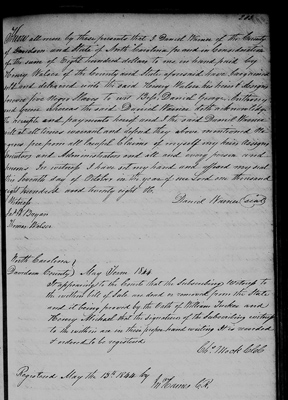 Know all men by these presents that I Daniel Warner of the County
of Davidson and State of North Carolina for and in Consideration
of the sum of Eight hundred dollars to me in hand paid by
Henry Walser of the County and State aforesaid have bargained
sold and delivered unto the said Henry Walser his heirs &
five Negro Slaves to wit David George Anthony
and I the said Daniel
the receipt and payment hereof and I the said Daniel Warner
will at all times warrant and defend the above mentioned Ne
groes free from all lawful Claims of myself my heirs
Executors and Administrators and all and every person and
persons In witness I have set my hand and affixed my seal
this seventh day of October in the year of our Lord one thousand
eight hundred and twenty eight
Witness Daniel Warner (seal)
Bryan
Walser
North Carolina
Davidson County } May Term 1844
It appearing to the Court that the Subscribing Witness to
the within bill of Sale are dead or removed from the State
and it being proved by the oath of William Tucker and
Henry Michael that the signature of the Subscribing witness
to the within are in their proper hand writing It is
ordered to be registered
Mock CCC
Registered May the 13th 1844 by
PR